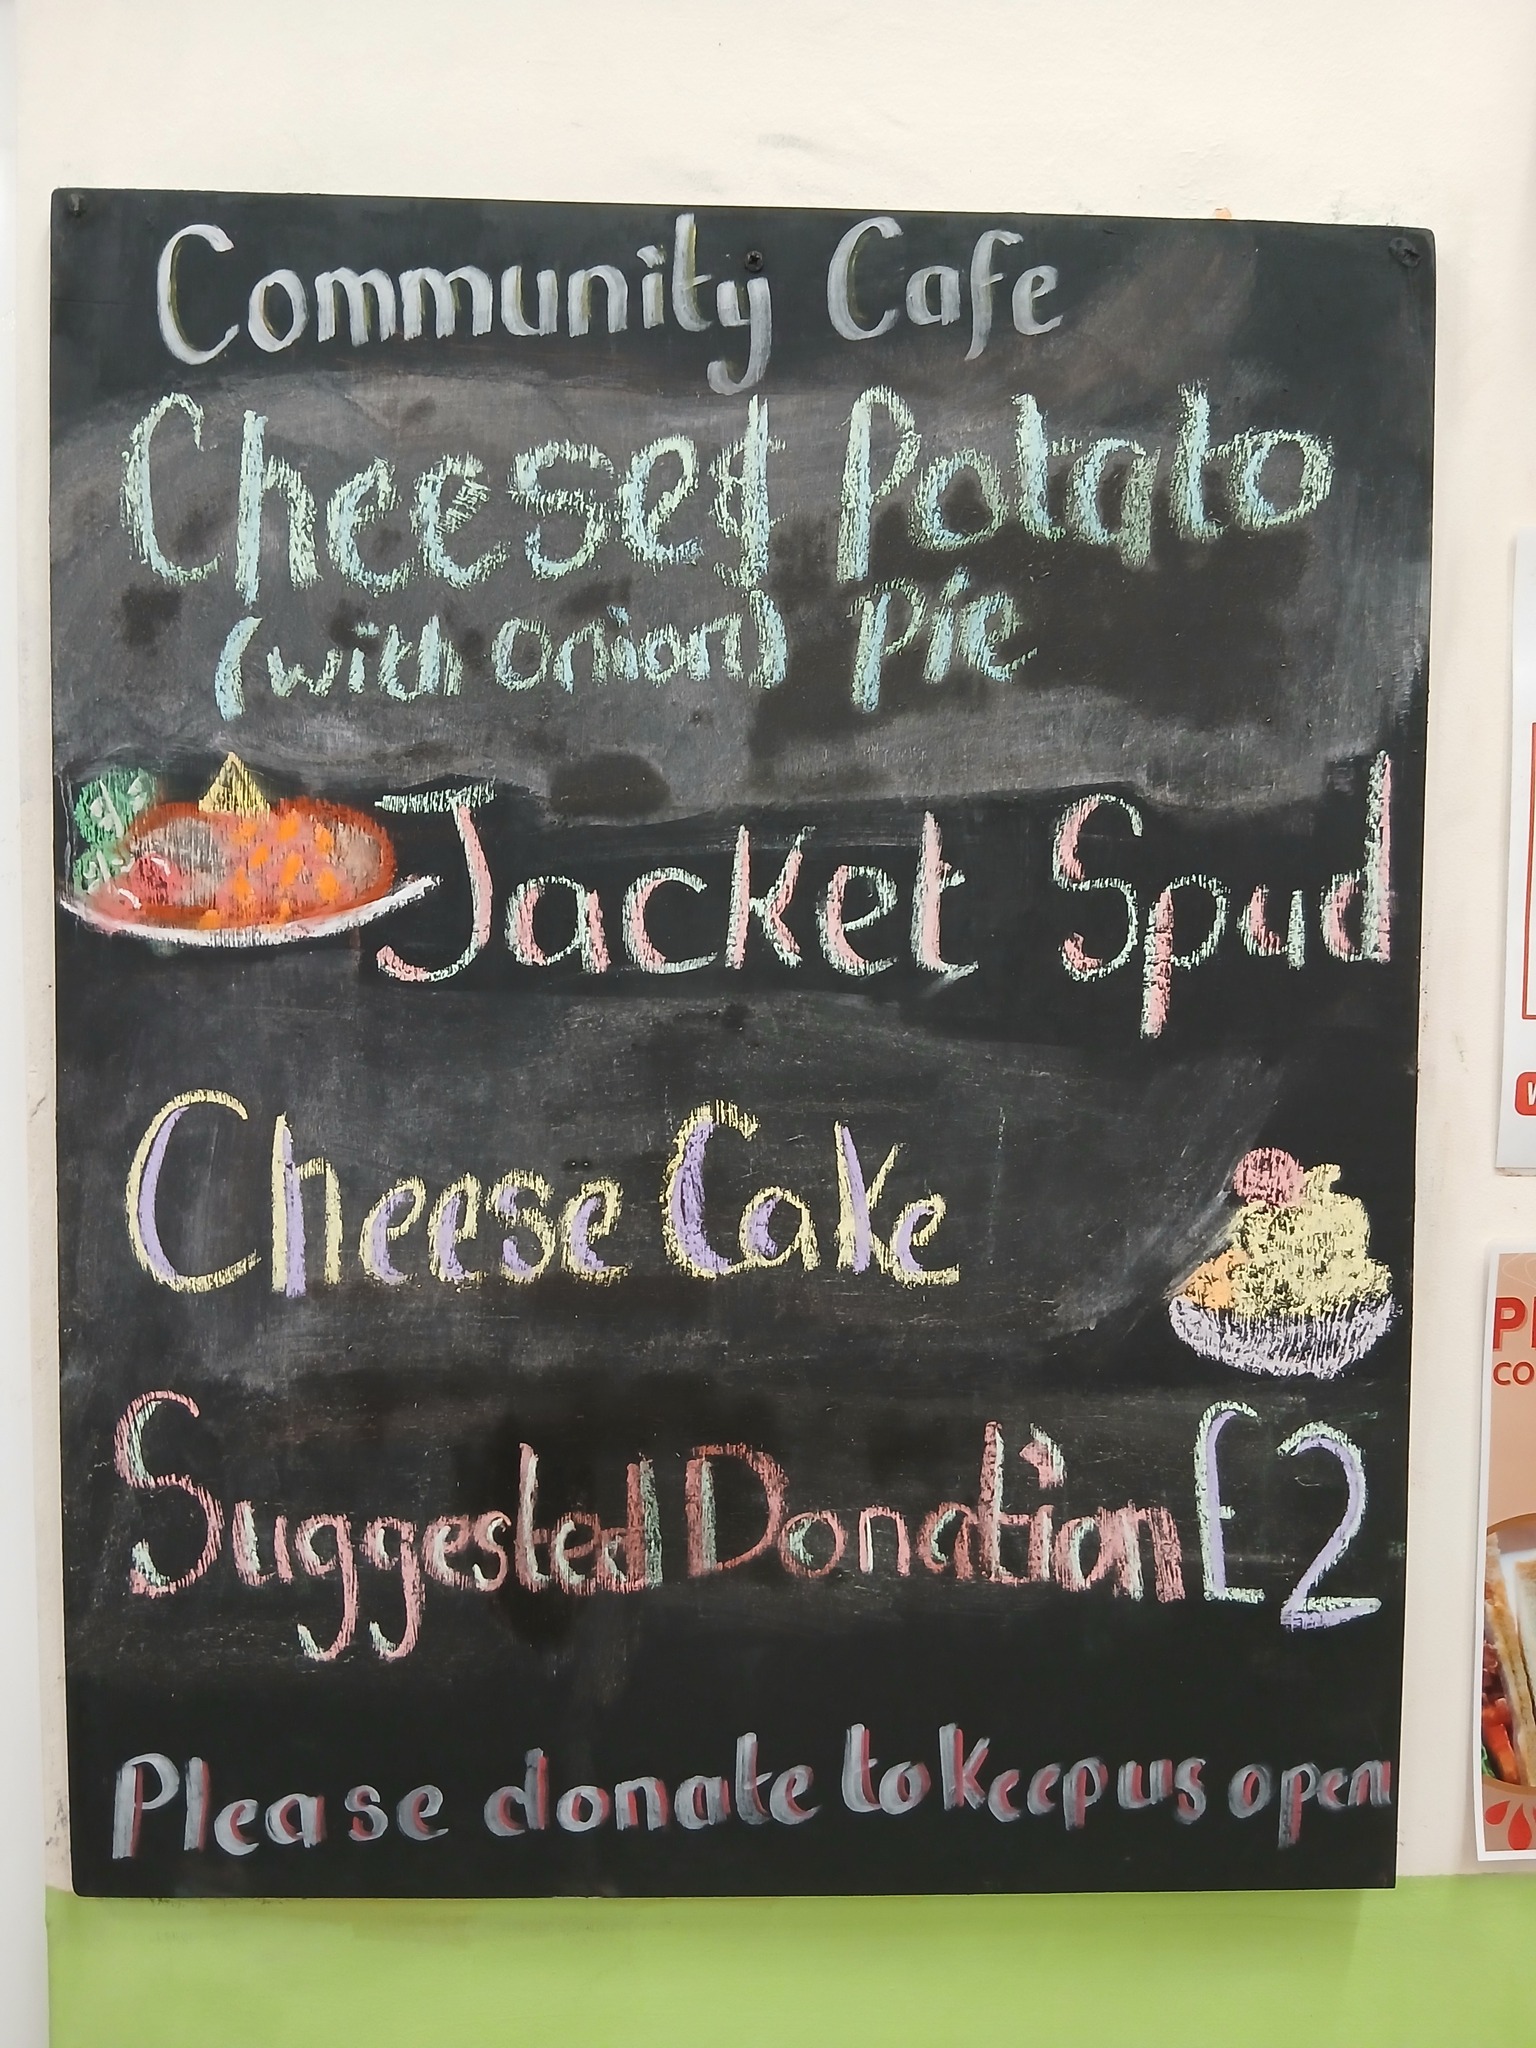 Community Cafe
Cheese & Potato
(with onion) Pie
Jacket Spud
Cheese Cake
Suggested Donation £2
Please donate to keep us open